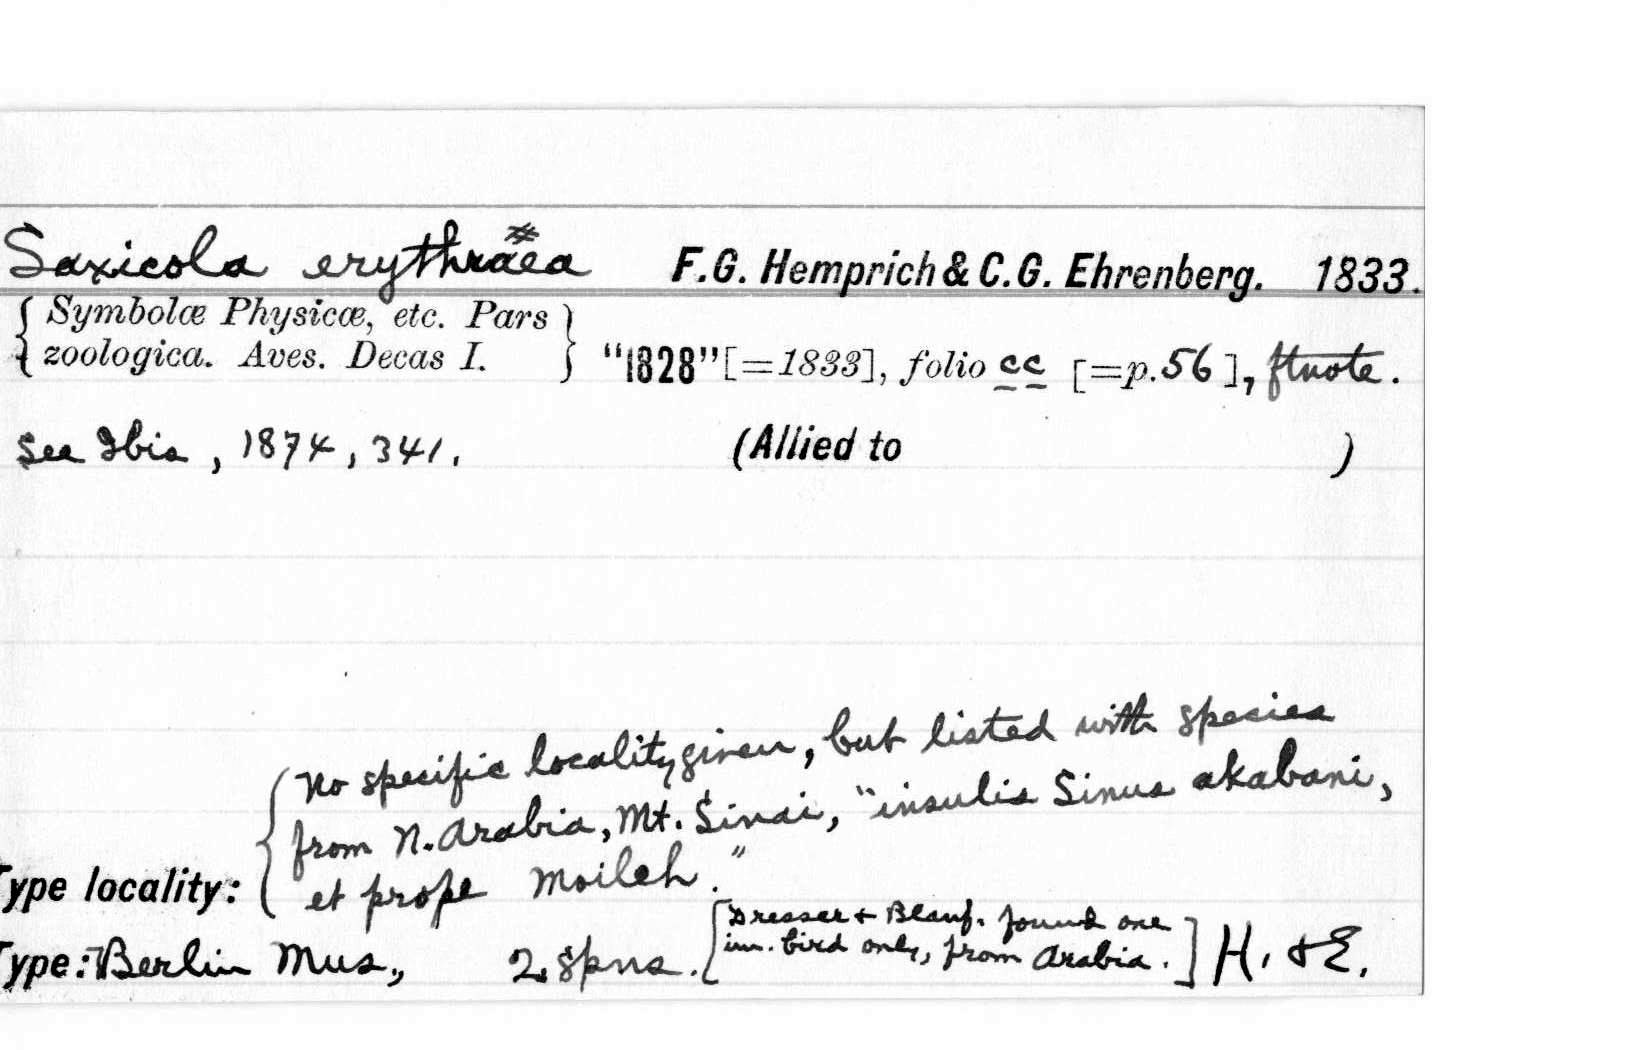 Saxicola erythræa # F.G. Hemprich & C.G. Ehrenberg. 1833.
{ Symbolæ Physicæ, etc. Pars
zoologica. Aves. Decas I. } "1828" [=1833], folio cc [=p. 56], ftnote.
See Ibis, 1874, 341. (Allied to )
No specific locality given, but listed with species
from N. Arabia, Mt. Sinai, "insulis Sinus akabani,
Type locality: et prope Moileh."
[Dresser & Blanf. found one
im. bird only, from Arabia.]
Type: Berlin Mus., 2 spns. H. & E.